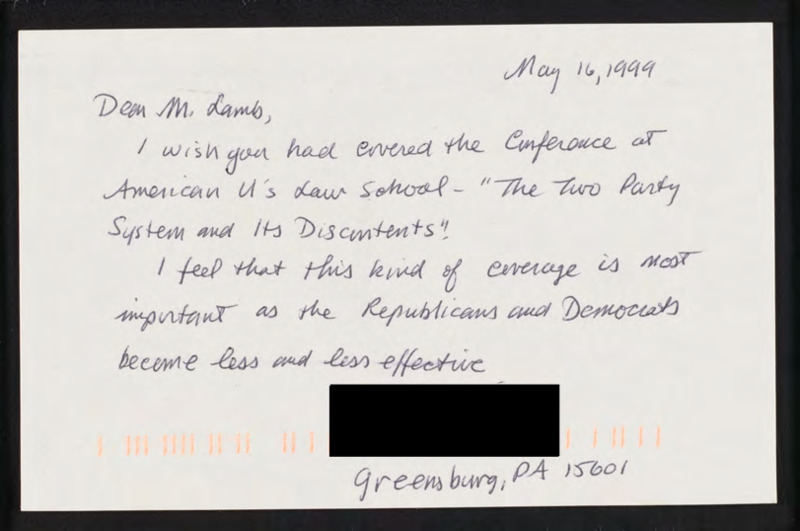 May 16, 1999
Dear Mr. Lamb,
I wish you had covered the Conference at
American U's Law School - "The Two Party
System and Its Discontents".
I feel that this kind of coverage is most
important as the Republicans and Democrats
become less and less effective
Greensburg, PA 15601